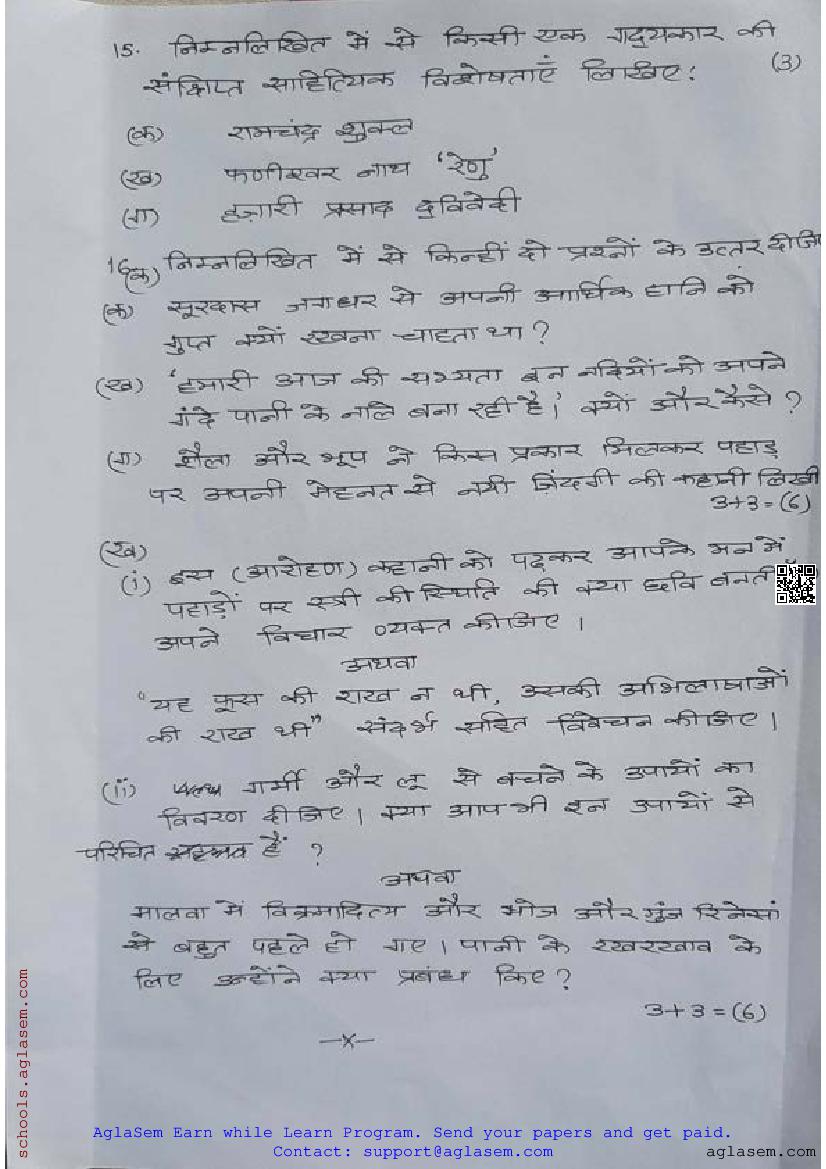 15. निम्नलिखित में से किसी एक गद्यकार की
संक्षिप्त साहित्यिक विशेषताएँ लिखिए: (3)
(क) रामचंद्र शुक्ल
(ख) फणीश्वर नाथ 'रेणु'
(ग) हज़ारी प्रसाद द्विवेदी
16(क) निम्नलिखित में से किन्हीं दो प्रश्नों के उत्तर दीजि
(क) सूरदास जगधर से अपनी आर्थिक हानि को
गुप्त क्यों रखना चाहता था?
(ख) 'हमारी आज की सभ्यता इन नदियों को अपने
गंदे पानी के नाले बना रही है।' क्यों और कैसे?
(ग) शैला और भूप ने किस प्रकार मिलकर पहाड़
पर अपनी मेहनत से नयी ज़िंदगी की कहानी लिखी
3+3=(6)
(ख)
(i) इस (आरोहण) कहानी को पढ़कर आपके मन में
पहाड़ों पर स्त्री की स्थिति की क्या छवि बनती
अपने विचार व्यक्त कीजिए।
अथवा
"यह फूस की राख न थी, उसकी अभिलाषाओं
की राख थी" संदर्भ सहित विवेचन कीजिए।
(ii) गर्मी और लू से बचने के उपायों का
विवरण दीजिए। क्या आप भी इन उपायों से
परिचित हैं ?
अथवा
मालवा में विक्रमादित्य और भोज और मुंज रिनेसां
से बहुत पहले हो गए। पानी के रखरखाव के
लिए उन्होंने क्या प्रबंध किए?
3+3=(6)
—x—
schools.aglasem.com
AglaSem Earn while Learn Program. Send your papers and get paid.
Contact: support@aglasem.com
aglasem.com